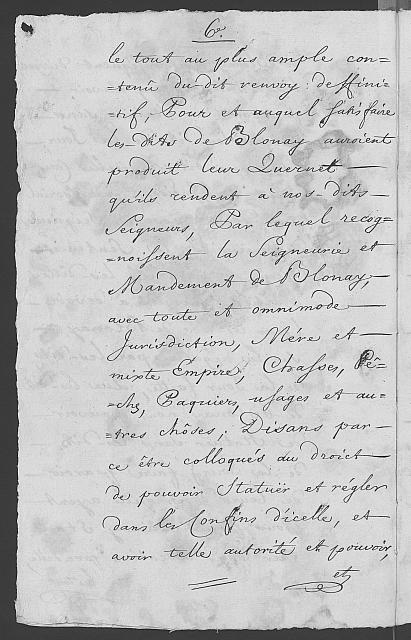 6.e
le tout au plus ample con-
-tenû du dit renvoy: deffini-
-tif, Pour et auquel satisfaire
les-dits De Blonay auroient
produit leur Quernet
qu'ils rendent à nos-dits
Seigneurs, Par lequel recog-
-noissent la Seigneurie et
Mandement de Blonay,
avec toute et omnimode
Jurisdiction, Mére et
mixte Empire, Chasses, Pê-
-che, Paquiers, usages et au-
-tres chôses; Disans par
ce être colloqués au droit
de pouvoir Statuër et régler
dans les Confins d'icelle, et
avoir telle autorité et pouvoir,
et